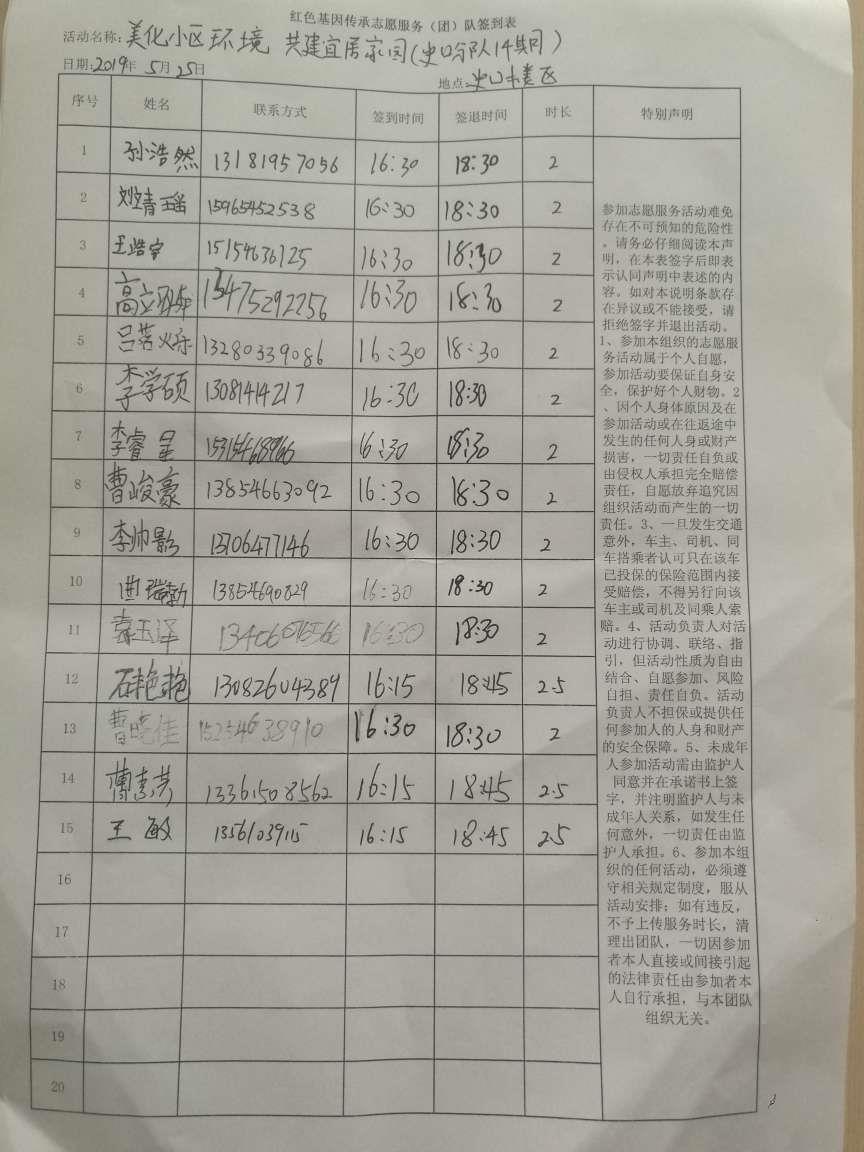 红色基因传承志愿服务（团）队签到表
活动名称：美化小区环境 共建宜居家园（史口分队14期）
日期：2019年5月25日
地点：史口小区
序号 姓名 联系方式 签到时间 签退时间 时长 特别声明
1 孙浩然 13181957056 16:30 18:30 2
2 刘靖瑶 15965452538 16:30 18:30 2
3 王浩宇 15154636125 16:30 18:30 2
4 高立 13475292256 16:30 18:30 2
5 吕若烁 13280339086 16:30 18:30 2
6 李学硕 13081414217 16:30 18:30 2
7 李睿星 16:30 18:30 2
8 曹峻豪 13854663092 16:30 18:30 2
9 李帅影 13706477146 16:30 18:30 2
10 曲瑞勃 13854690829 16:30 18:30 2
11 袁玉泽 16:30 18:30 2
12 石艳艳 13082604389 16:15 18:45 2.5
13 曹晓佳 15254638910 16:30 18:30 2
14 13361508562 16:15 18:45 2.5
15 王敏 13561039115 16:15 18:45 2.5
16
17
18
19
20
参加志愿服务活动难免
存在不可预知的危险性
。请务必仔细阅读本声
明，在本表签字后即表
示认同声明中表述的内
容。如对本说明条款存
在异议或不能接受，请
拒绝签字并退出活动。
1、参加本组织的志愿服
务活动属于个人自愿，
参加活动要保证自身安
全，保护好个人财物。2
、因个人身体原因及在
参加活动或在往返途中
发生的任何人身或财产
损害，一切责任自负或
由侵权人承担完全赔偿
责任，自愿放弃追究因
组织活动而产生的一切
责任。3、一旦发生交通
意外，车主、司机、同
车搭乘者认可只在该车
已投保的保险范围内接
受赔偿，不得另行向该
车主或司机及同乘人索
赔。4、活动负责人对活
动进行协调、联络、指
引，但活动性质为自由
结合、自愿参加、风险
自担、责任自负。活动
负责人不担保或提供任
何参加人的人身和财产
的安全保障。5、未成年
人参加活动需由监护人
同意并在承诺书上签
字，并注明监护人与未
成年人关系，如发生任
何意外，一切责任由监
护人承担。6、参加本组
织的任何活动，必须遵
守相关规定制度，服从
活动安排；如有违反，
不予上传服务时长，清
理出团队，一切因参加
者本人直接或间接引起
的法律责任由参加者本
人自行承担，与本团队
组织无关。